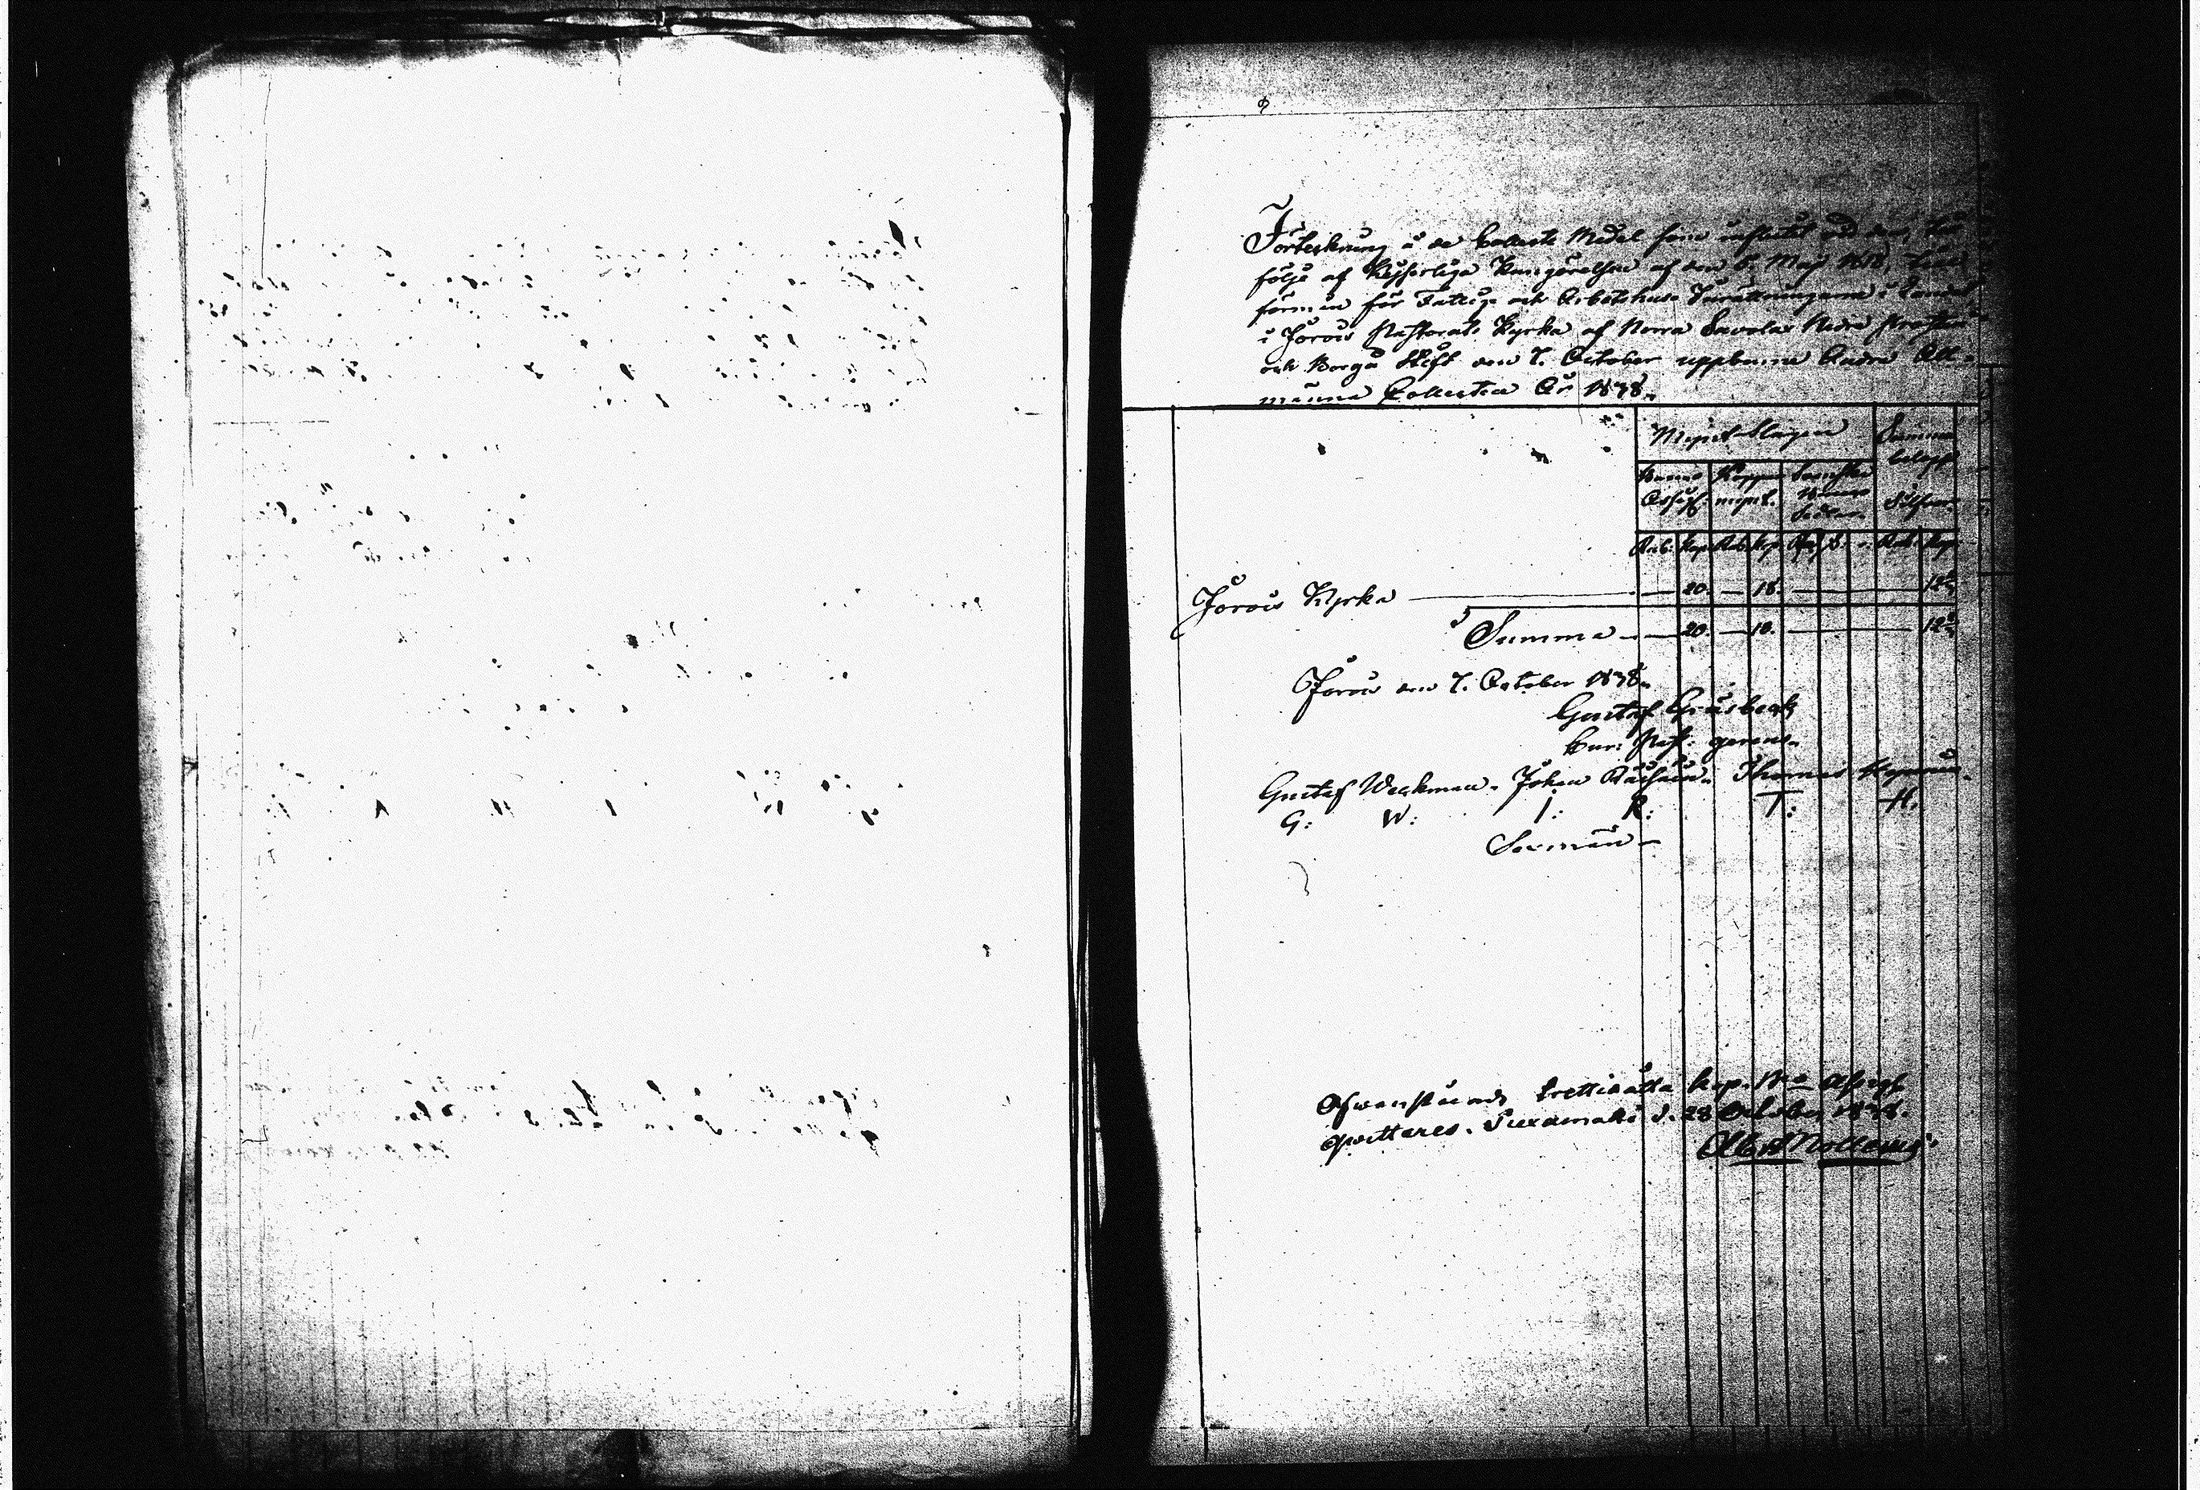 Förteckning å de Collecte Medel som influtit vid den, till
följe af Kejserliga Kungörelsen af den 5. Maj 1838, till
förmån för Fattig- och Arbetshus-Inrättningarna i Landet
i Jorois Pastorats Kyrka af Norra Savolax Nedre Prosteri
och Borgå Stift den 7. October uppburna Andra All-
männa Collecten År 1838.
Mynt-slagen Summa
Banco Koppar Svenska belopp
Assign. mynt. Banco Silfver.
Sedlar.
Rub. Kop. Rub. Kop. Rub. Kop.
Jorois Kyrka — 20. — 18. —
Summa — 20. — 18. —
Jorois den 7. October 1838.
Gustaf Gråsbeck
Cur. Past. gerens.
Gustaf Weckman. Johan Räisäin. Thomas
G: W: I: R: T: H.
Sexmän
Ofwanstående trettioåtta kop. B:co Assign.
qvitteres. d. 28 October 1838.